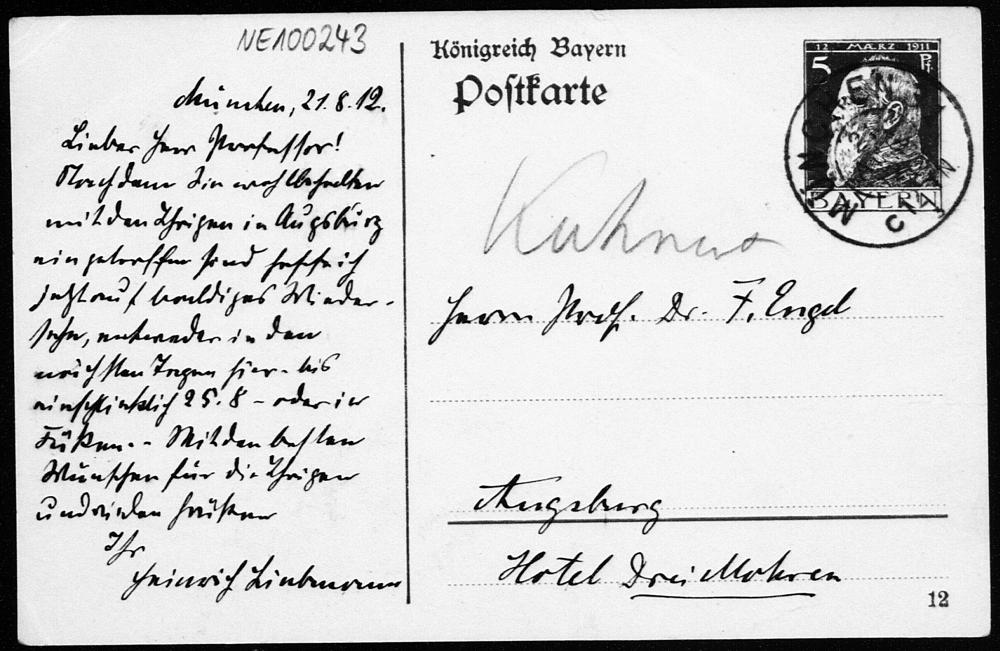 NE100243
München, 21.8.12.
Lieber Herr Professor!
Nachdem Sie wohlbehalten
mit den Ihrigen in Augsburg
eingetroffen sind hoffe ich
jetzt auf baldiges Wieder-
sehn, entweder in den
nächsten Tagen hier - bis
einschließlich 25.8 - oder in
Füßen. - Mit den besten
Wünschen für die Ihrigen
und vielen Grüßen
Ihr
Heinrich Liebmann
Königreich Bayern
Postkarte
12 MÆRZ 1911
5 Pf
BAYERN
MÜNCHEN
Herrn Prof. Dr. F. Engel
Augsburg
Hotel Drei Mohren
12